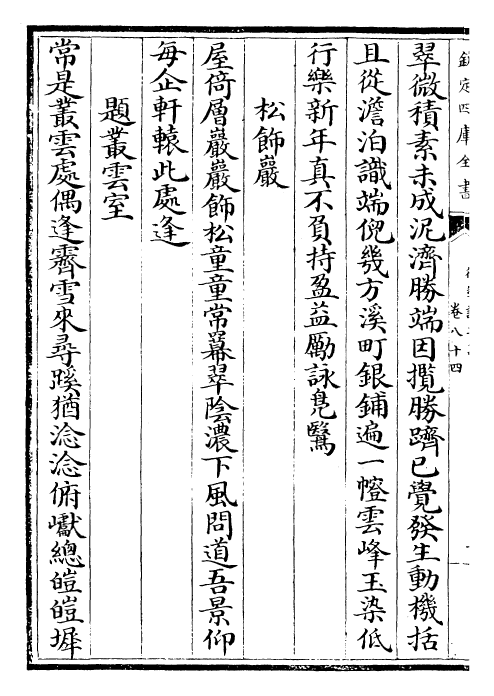 欽定四庫全書
卷八十四
翠微積素未成泥濟勝端因攬勝躋已覺發生動機括
且從澹泊識端倪幾方溪町銀鋪遍一幢雲峰玉染低
行樂新年真不負持盈益勵詠鳧鷖
松飾巖
屋倚層巖巖飾松童童常羃翠陰濃下風問道吾景仰
每企軒轅此處逢
題叢雲室
常是叢雲處偶逢霽雪來尋蹊猶淰淰俯巘總皚皚墀